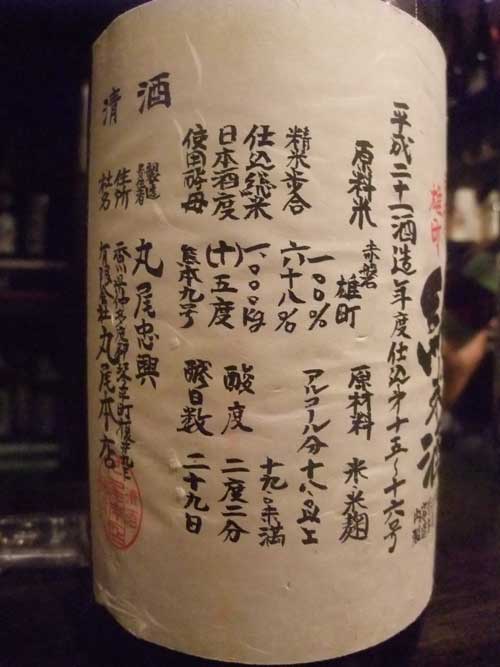 雄町
純米酒
平成二十一酒造年度仕込み第十五~十六号
原料米 赤磐雄町一〇〇%
原材料 米・米麹
精米歩合 六十八%
アルコール分 十八・〇以上
十九・〇未満
仕込総米 一、〇〇〇kg
日本酒度 (十)五度
酸度 二度二分
使用酵母 熊本九号
醪日数 二十九日
清酒
製造責任者 丸尾忠興
住所 香川県仲多度郡琴平町榎井
社名 有限会社丸尾本店